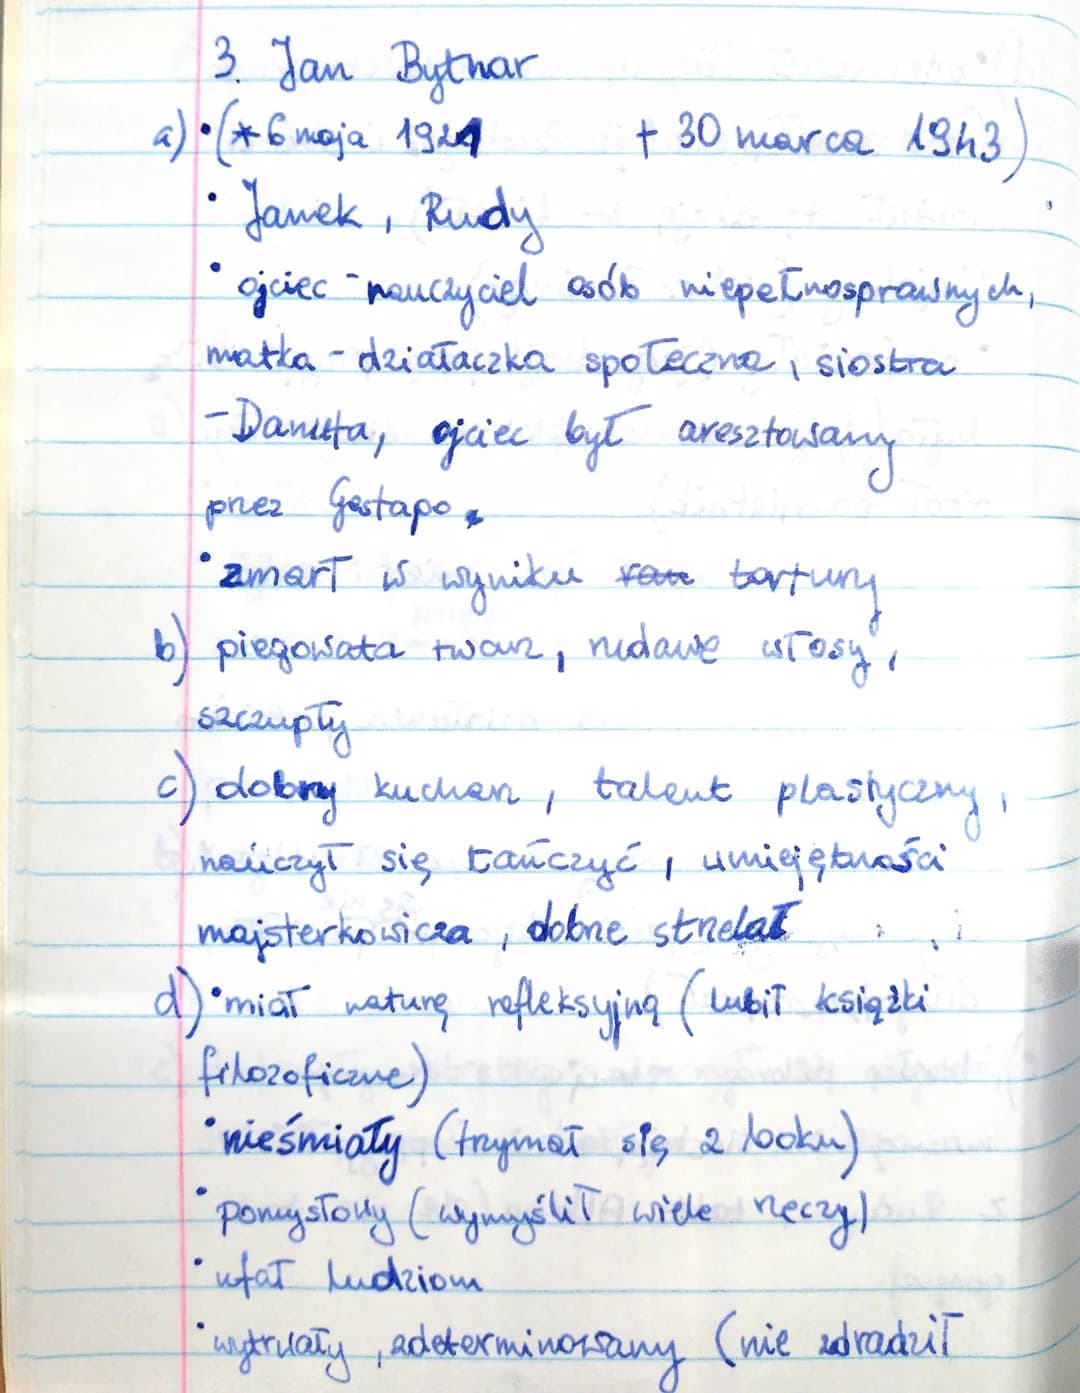 3. Jan Bytnar
a) • (* 6 maja 1921 + 30 marca 1943)
• Janek, Rudy
• ojciec - nauczyciel osób niepełnosprawnych,
matka - działaczka społeczna, siostra
- Danuta, ojciec był aresztowany
przez Gestapo.
• zmarł w wyniku ran tortury
b) piegowata twarz, rudawe włosy,
szczupły
c) dobry kucharz, talent plastyczny,
nauczył się tańczyć, umiejętności
majsterkowicza, dobrze strzelał
d) • miał naturę refleksyjną (lubił książki
filozoficzne)
• nieśmiały (trzymał się z boku)
• pomysłowy (wymyślił wiele rzeczy)
• ufał ludziom
• wytrwały, zdeterminowany (nie zdradził